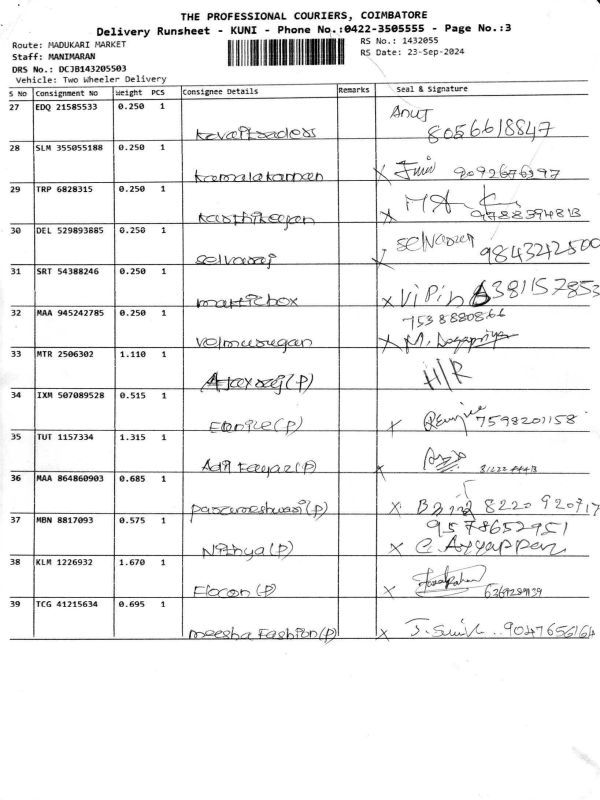 THE PROFESSIONAL COURIERS, COIMBATORE
Delivery Runsheet - KUNI - Phone No.:0422-3505555 - Page No.:3
Route: MADUKARI MARKET
RS No.: 1432055
Staff: MANIMARAN
RS Date: 23-Sep-2024
DRS No.: DCJB143205503
Vehicle: Two Wheeler Delivery
S No Consignment No Weight PCS Consignee Details Remarks Seal & Signature
27 EDQ 21585533 0.250 1 Anuj
8056618847
28 SLM 355055188 0.250 1
kamalakannan x 9092676297
29 TRP 6828315 0.250 1
karthikeyan x 9788394813
30 DEL 529893885 0.250 1
selvaraj 9843242500
31 SRT 54388246 0.250 1
martichox x ViPin 6381157853
32 MAA 945242785 0.250 1 7538880866
velmurugan x M.
33 MTR 2506302 1.110 1
(P) H/R
34 IXM 507089528 0.515 1
(P) x 7598201158
35 TUT 1157334 1.315 1
(P) x
36 MAA 864860903 0.685 1
parameshwari(P) x 8220920717
37 MBN 8817093 0.575 1 9578652951
Nithya(P) x C. Ayyappan
38 KLM 1226932 1.670 1
Flocon(P) x 6369289139
39 TCG 41215634 0.695 1
meesha Fashion(P) x 9047656164